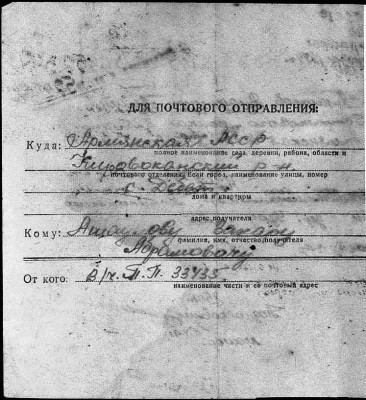 ДЛЯ ПОЧТОВОГО ОТПРАВЛЕНИЯ:
Куда: Армянская АССР
полное наименование села, деревни, района, области и
Кировоканский р-н
почтового отделения. Если город, наименование улицы, номер
с.
дома и квартиры
адрес получателя
Кому: Захару
фамилия, имя, отчество получателя
Абрамовичу
От кого: В/ч. П.П. 33435
наименование части и её почтовый адрес